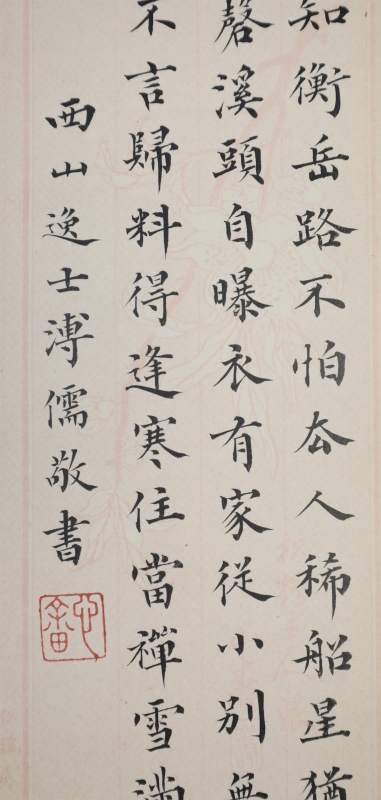 知衡岳路不怕厺人稀船星猶
磬溪頭自曝衣有家從小別無
不言歸料得逢寒住當禪雪滿
西山逸士溥儒敬書
心畬